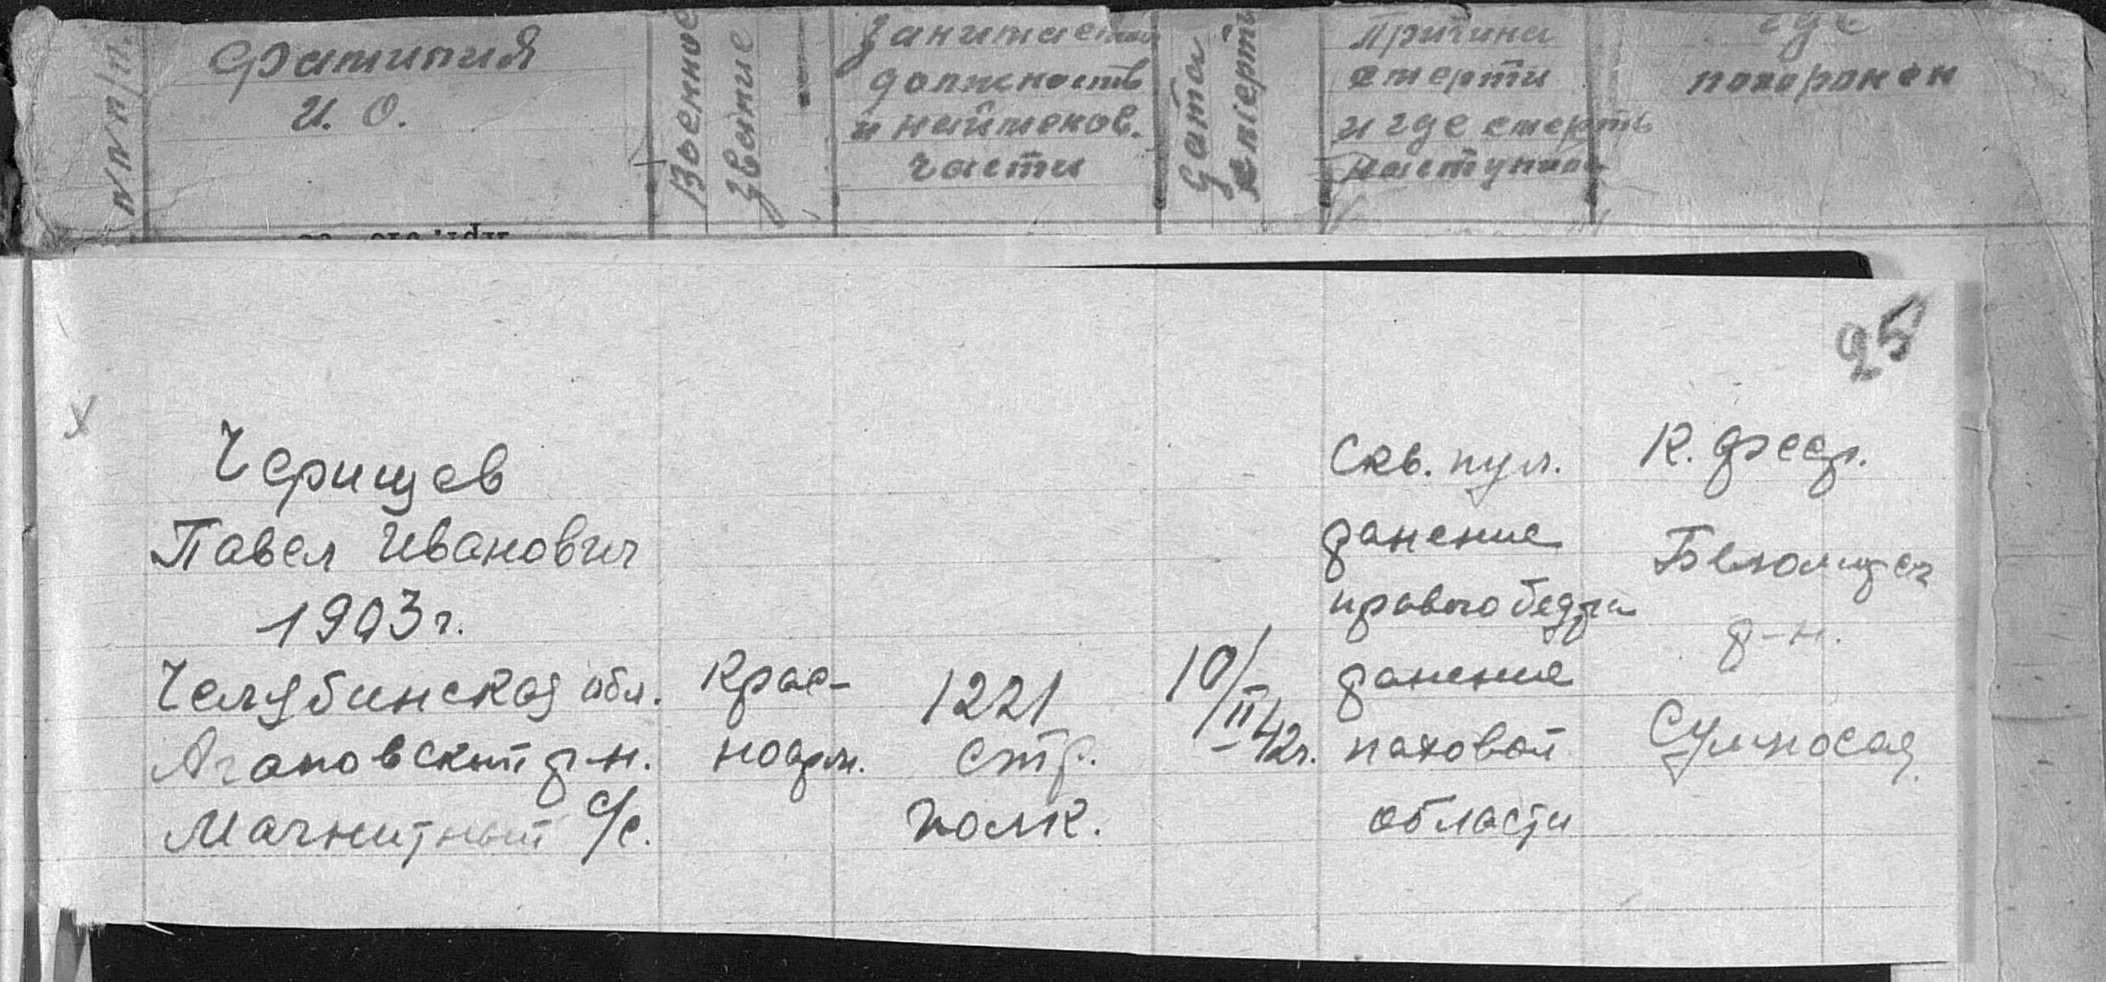 NN п/п.
Фамилия
И. О.
Военное
звание
Занимаемая
должность
и наименов.
части
Дата
смерти
Причина
смерти
и где смерть
наступила
где
похоронен
25
Черищев
Павел Иванович
1903 г.
Челябинская обл.
Агаповский р-н.
Магнитный с/с.
Крас-
ноарм.
1221
стр.
полк.
10/II 42г.
Скв. пул.
ранение
правого бедра
ранение
паховой
области
К.
р-н.
Сумской